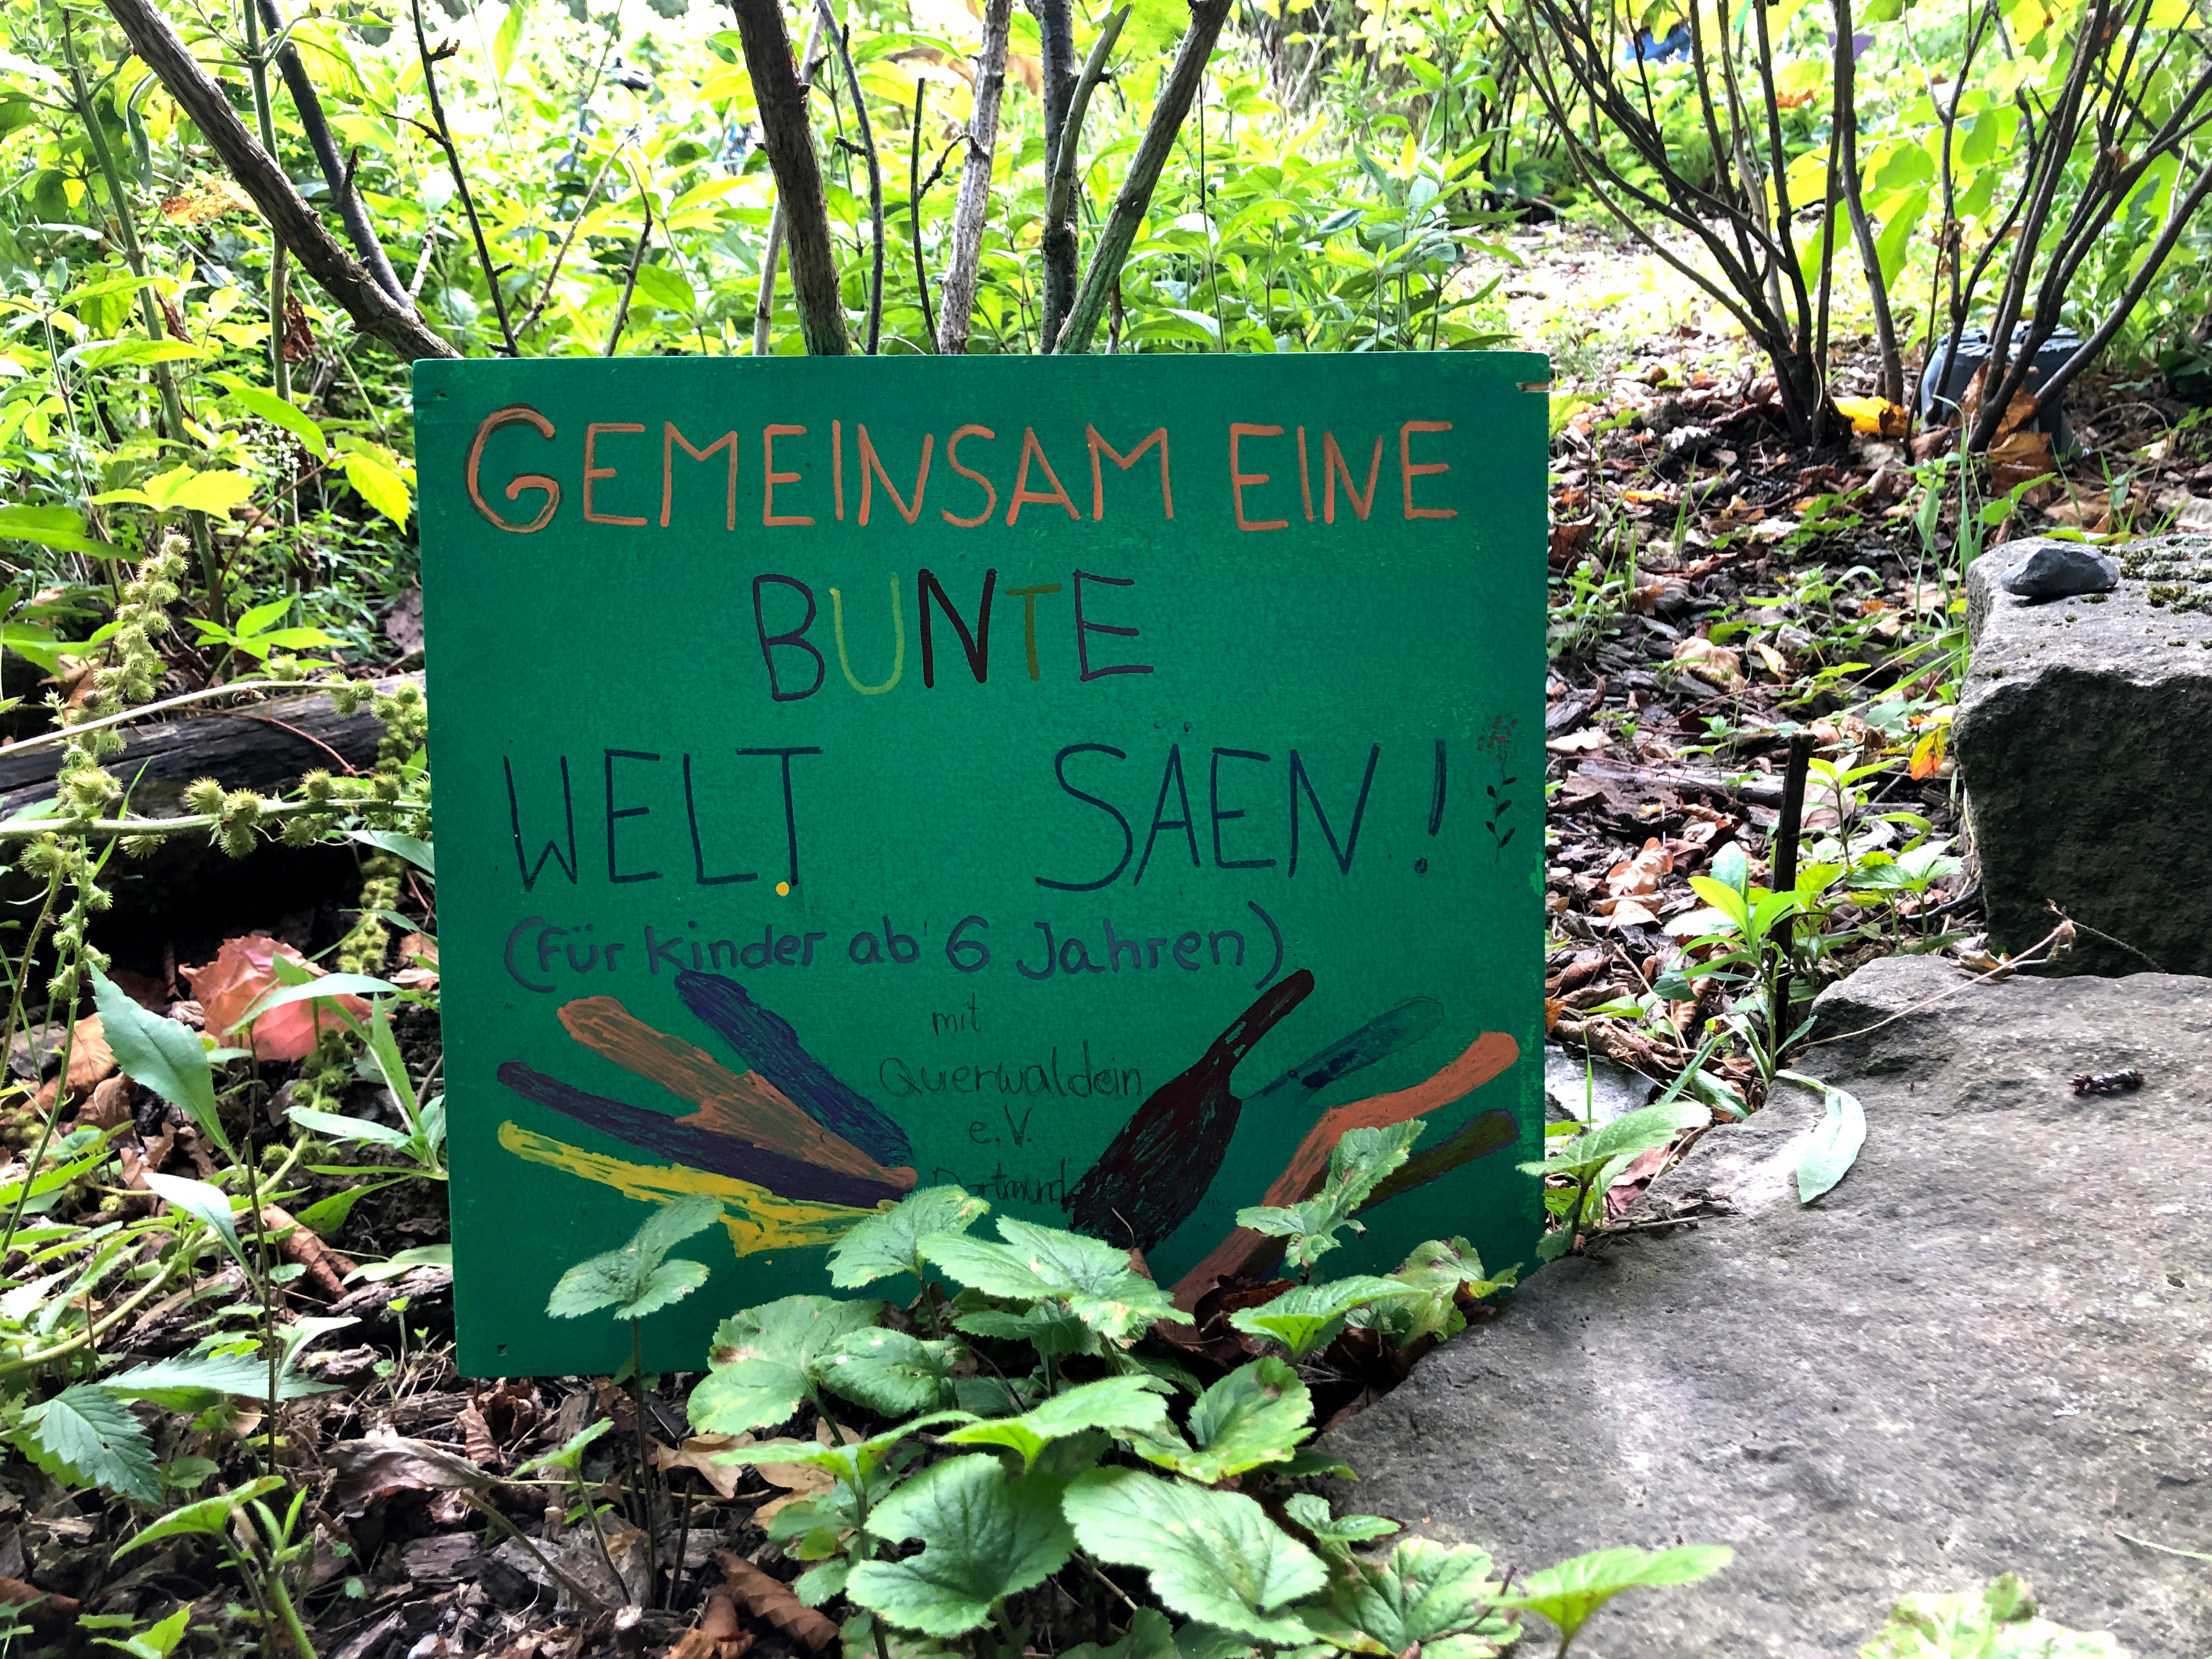 GEMEINSAM EINE
BUNTE
WELT SÄEN!
(Für Kinder ab 6 Jahren)
mit
Querwaldein
e.V.
Dortmund